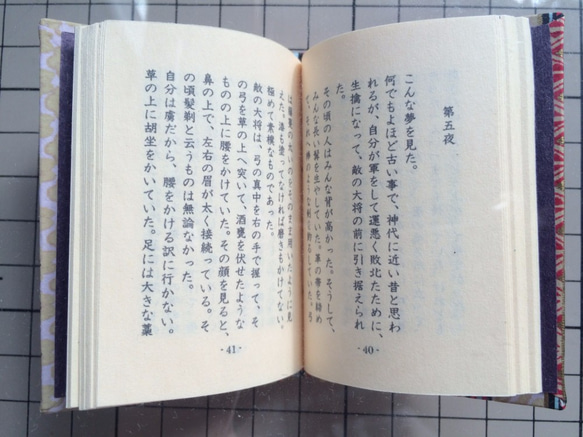 第五夜
こんな夢を見た。
何でもよほど古い事で、神代に近い昔と思わ
れるが、自分が軍をして運悪く敗北たために、
生擒になって、敵の大将の前に引き据えられ
た。
その頃の人はみんな背が高かった。そうして、
みんな長い髯を生やしていた。革の帯を締め
て、それへ棒のような剣を釣るしていた。弓
- 40 -
は藤蔓の太いのをそのまま用いたように見
えた。漆も塗ってなければ磨きもかけてない。
極めて素樸なものであった。
敵の大将は、弓の真中を右の手で握って、そ
の弓を草の上へ突いて、酒甕を伏せたような
ものの上に腰をかけていた。その顔を見ると、
鼻の上で、左右の眉が太く接続っている。そ
の頃髪剃と云うものは無論なかった。
自分は虜だから、腰をかける訳に行かない。
草の上に胡坐をかいていた。足には大きな藁
- 41 -